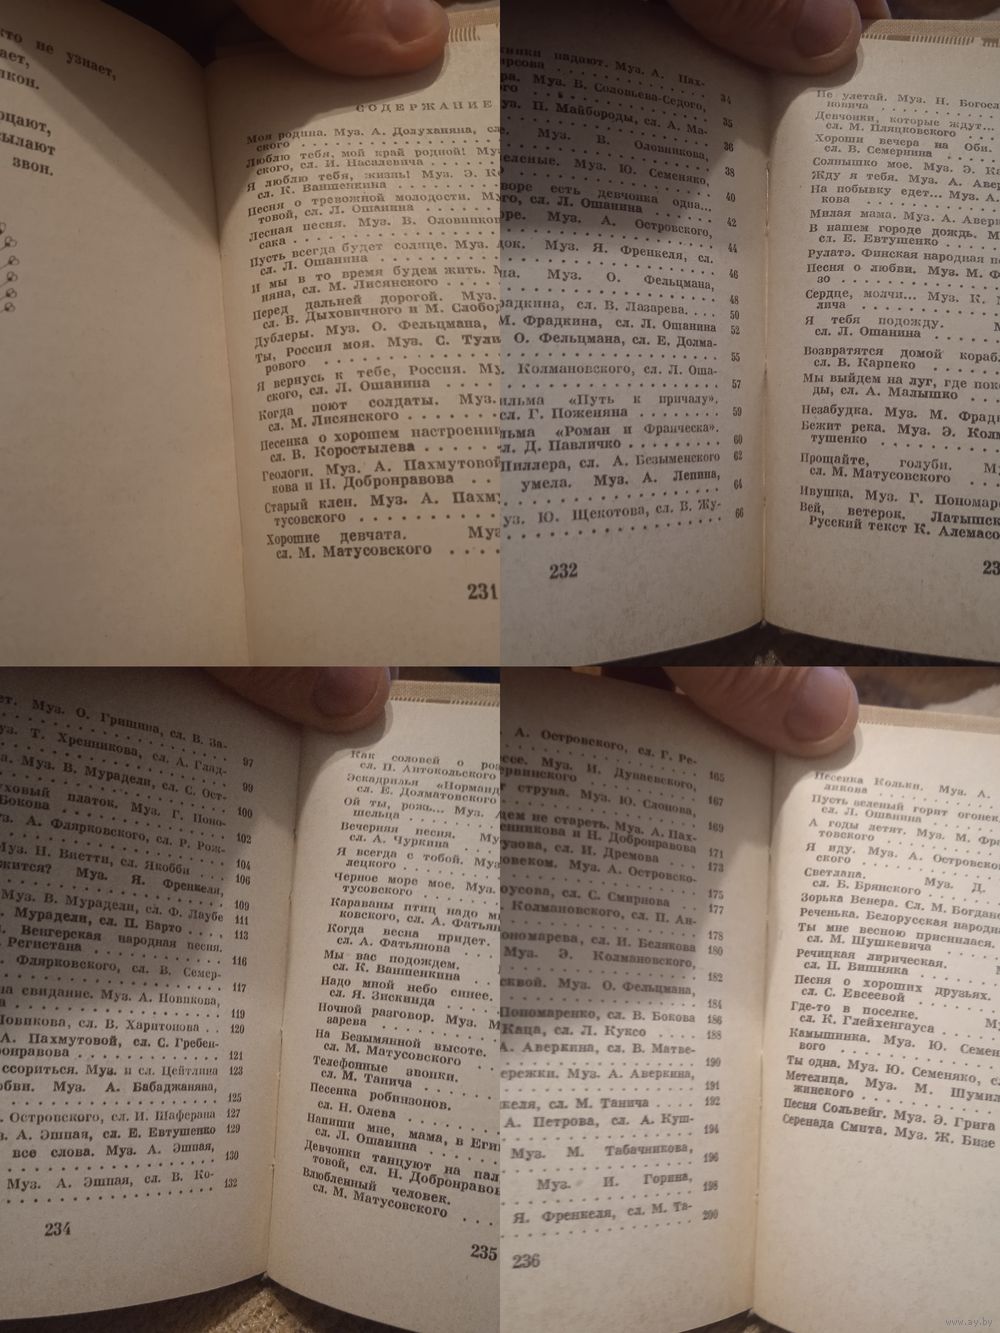 кто не узнает,
ает,
лкон.
оцают,
сылают
звон.
СОДЕРЖАНИЕ
Моя родина. Муз. А. Долуханяна, сл
ского
Люблю тебя, мой край родной! Му
ского, сл. И. Насалевича
Я люблю тебя, жизнь! Муз. Э. Ко
сл. К. Ваншенкина
Песня о тревожной молодости. Му
товой, сл. Л. Ошанина
Лесная песня. Муз. В. Оловников
сака
Пусть всегда будет солнце. Муз.
сл. Л. Ошанина
И мы в то время будем жить. М
няна, сл. М. Лисянского
Перед дальней дорогой. Муз.
сл. В. Дыховичного и М. Слобод
Дублеры. Муз. О. Фельцмана,
Ты, Россия моя. Муз. С. Тули
рового
Я вернусь к тебе, Россия. Му
ского, сл. Л. Ошанина
Когда поют солдаты. Муз.
сл. М. Лисянского
Песенка о хорошем настроении
сл. В. Коростылева
Геологи. Муз. А. Пахмутовой
кова и Н. Добронравова
Старый клен. Муз. А. Пахм
тусовского
Хорошие девчата. Муз
сл. М. Матусовского
231
жинки падают. Муз. А. Пах-
ирсова 34
ра. Муз. В. Соловьева-Седого,
ого 35
уз. П. Майбороды, сл. А. Ма-
36
Муз. В. Оловникова,
38
еленые. Муз. Ю. Семеняко,
40
воре есть девчонка одна...
го, сл. Л. Ошанина 42
оре. Муз. А. Островского,
44
док. Муз. Я. Френкеля, сл.
46
на. Муз. О. Фельцмана,
48
радкина, сл. В. Лазарева. 50
М. Фрадкина, сл. Л. Ошанина 52
О. Фельцмана, сл. Е. Долма-
55
Колмановского, сл. Л. Оша-
57
ильма «Путь к причалу».
сл. Г. Поженяна 59
льма «Роман и Франческа».
л. Д. Павличко 60
Пиллера, сл. А. Безыменского 62
умела. Муз. А. Лепина,
64
уз. Ю. Щекотова, сл. В. Жу-
66
232
Не улетай. Муз. Н. Богосл
новича
Девчонки, которые ждут...
сл. М. Пляцковского
Хороши вечера на Оби.
сл. В. Семернина
Солнышко мое. Муз. Э. Ка
Жду я тебя. Муз. А. Авер
На побывку едет... Муз. А.
кова
Милая мама. Муз. А. Аверк
В нашем городе дождь. М
сл. Е. Евтушенко
Рулатэ. Финская народная п
Песня о любви. Муз. М. Ф
зо
Сердце, молчи... Муз. К. М
лича
Я тебя подожду. М
сл. Л. Ошанина
Возвратятся домой кораб
сл. В. Карпеко
Мы выйдем на луг, где пок
ды, сл. А. Малышко
Незабудка. Муз. М. Фрад
Бежит река. Муз. Э. Колм
тушенко
Прощайте, голуби. Му
сл. М. Матусовского
Ивушка. Муз. Г. Пономар
Вей, ветерок. Латышск
Русский текст К. Алемасо
23
ет. Муз. О. Гришина, сл. В. За-
97
уз. Т. Хренникова, сл. А. Глад-
99
а. Муз. В. Мурадели, сл. С. Ост-
100
уховый платок. Муз. Г. Поно-
Бокова 102
уз. А. Флярковского, сл. Р. Рож-
104
Муз. Н. Виетти, сл. Якобби 106
жится? Муз. Я. Френкеля,
109
Муз. В. Мурадели, сл. Ф. Лаубе 111
. Мурадели, сл. П. Барто 113
. Венгерская народная песня.
. Регистана 116
Флярковского, сл. В. Семер-
117
на свидание. Муз. А. Новикова,
а 119
Новикова, сл. В. Харитонова 120
А. Пахмутовой, сл. С. Гребен-
бронравова 121
ссориться. Муз. и сл. Цейтлина 123
юбви. Муз. А. Бабаджаняна,
125
. Островского, сл. И. Шаферана 127
з. А. Эшпая, сл. Е. Евтушенко 129
все слова. Муз. А. Эшпая,
130
Муз. А. Эшпая, сл. В. Ко-
132
234
Как соловей о роз
сл. П. Антокольского
Эскадрилья «Норманд
сл. Е. Долматовского
Ой ты, рожь... Муз. А
шельца
Вечерняя песня. Му
сл. А. Чуркина
Я всегда с тобой. Муз
лецкого
Черное море мое. Муз.
тусовского
Караваны птиц надо м
ковского, сл. А. Фатьян
Когда весна придет.
сл. А. Фатьянова
Мы вас подождем.
сл. К. Ваншенкина
Надо мной небо синее.
сл. Я. Зискинда
Ночной разговор. Муз. М
зарева
На Безымянной высоте.
сл. М. Матусовского
Телефонные звонки.
сл. М. Танича
Песенка робинзонов.
сл. Н. Олева
Напиши мне, мама, в Еги
сл. Л. Ошанина
Девчонки танцуют на пал
товой, сл. Н. Добронравов
Влюбленный человек.
сл. М. Матусовского
235
А. Островского, сл. Г. Ре-
165
ссе. Муз. И. Дунаевского,
ервинского 167
г струна. Муз. Ю. Слонова,
169
дем не стареть. Муз. А. Пах-
енникова и Н. Добронравова 171
узова, сл. И. Дремова 173
овеком. Муз. А. Островско-
175
оусова, сл. С. Смирнова 177
Колмановского, сл. П. Ан-
178
ономарева, сл. И. Белякова 180
Муз. Э. Колмановского,
182
сквой. Муз. О. Фельцмана,
184
Пономаренко, сл. В. Бокова 186
Каца, сл. Л. Куксо 188
А. Аверкина, сл. В. Матве-
190
ережки. Муз. А. Аверкина,
191
нкеля, сл. М. Танича 192
А. Петрова, сл. А. Куш-
194
Муз. М. Табачникова,
196
Муз. И. Горина,
198
Я. Френкеля, сл. М. Та-
200
236
Песенка Кольки. Муз. А.
ликова
Пусть зеленый горит огонек.
сл. Л. Ошанина
А годы летят. Муз. М. Фра
товского
Я иду. Муз. А. Островског
ского
Светлана. Муз. Д.
сл. Б. Брянского
Зорька Венера. Сл. М. Богдано
Реченька. Белорусская народна
Ты мне весною приснилася.
сл. М. Шушкевича
Речицкая лирическая. М
сл. П. Вишняка
Песня о хороших друзьях.
сл. С. Евсеевой
Где-то в поселке. Му
сл. К. Глейхенгауса
Камышинка. Муз. Ю. Семен
вого
Ты одна. Муз. Ю. Семеняко, сл
Метелица. Муз. М. Шумил
жинского
Песня Сольвейг. Муз. Э. Грига
Серенада Смита. Муз. Ж. Бизе
www.ay.by